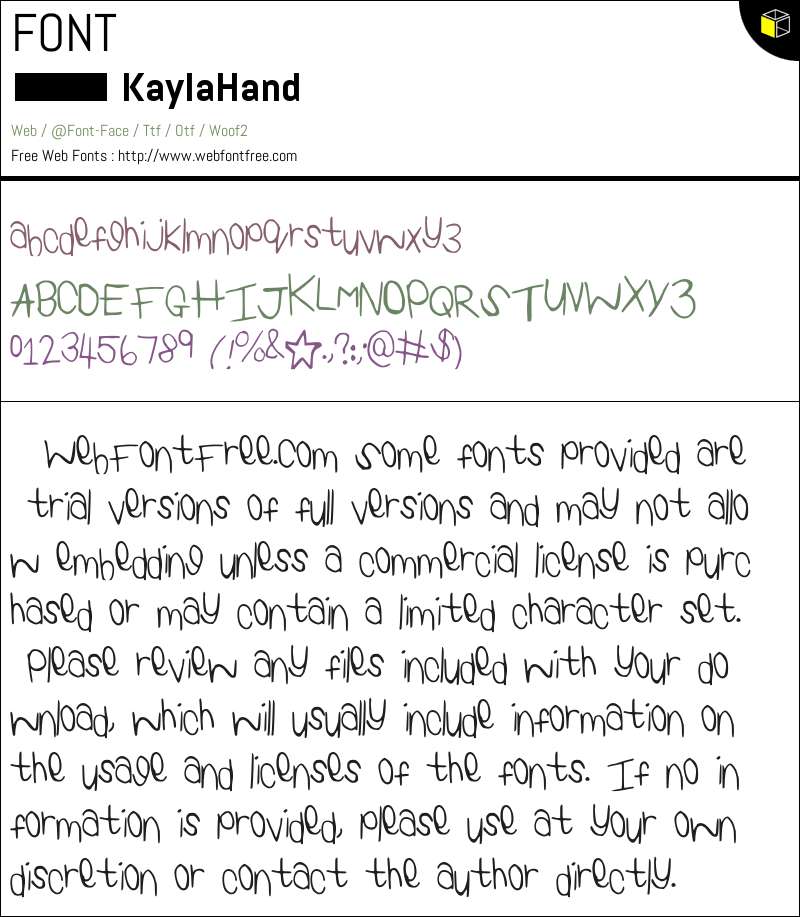 FONT
KaylaHand
Web / @Font-Face / Ttf / Otf / Woof2
Free Web Fonts : http://www.webfontfree.com
abcdefghijklmnopqrstuvwxyz
ABCDEFGHIJKLMNOPQRSTUVWXYZ
0123456789 (!%&☆.,?:;@#$)
WebFontFree.com Some fonts provided are
trial versions of full versions and may not allo
w embedding unless a commercial license is purc
hased or may contain a limited character set.
Please review any files included with your do
wnload, which will usually include information on
the usage and licenses of the fonts. If no in
formation is provided, please use at your own
discretion or contact the author directly.